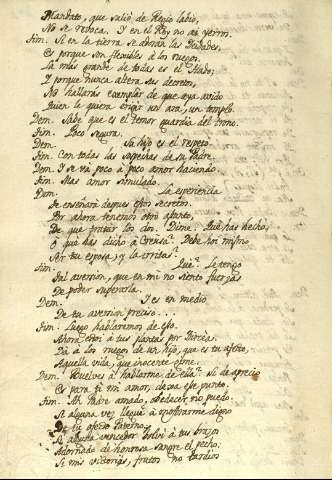 Mandato, que salió de Regio labio,
No se revoca. Y en el Rey no ai yerro.
Tim. Si en la tierra se adoran las Deidades,
Es porque son flexibles á los ruegos.
La más grande de todas es el Hado;
Y porque nunca altera sus decretos,
No hallarás exemplar de que aya avido
Quien le quiera erigir un ara, un templo.
Dem. Sabe que es el temor guardia del trono.
Tim. Poco segura.
Dem. Su hijo es el respeto.
Tim. Con todas las sospechas de su Padre.
Dem. Y se vá poco á poco amor haciendo.
Tim. Mas amor simulado.
Dem. La esperiencia
Te enseñará despues otros secretos.
Por ahora tenemos otro asunto,
De que tratar los dos. Dime: Qué has hecho,
O que has dicho á Creusa? Debe hoi mismo
Ser tu esposa; y la irritas?
Tim. La tengo
Tal aversion, que en mi no siento fuerzas
De poder superarla.
Dem. Y es en medio
De tu aversion preciso....
Tim. Luego hablaremos de eso.
Ahora estoi á tus plantas por Dircea.
Dá á los ruegos de un hijo, que es tu afecto,
Aquella vida, que inocente gime.
Dem. Vuelves á hablarme de ella? si de aprecio
Es para ti mi amor, dexa ese punto.
Tim. Ah Padre amado, obedecer no puedo.
Si alguna vez llegué á mostrarme digno
De tu afecto Paterno,
Si alguna vez vencedor bolví á tus brazos
Adornado de honrosa sangre el pecho:
Si mis victorias, frutos no tardios